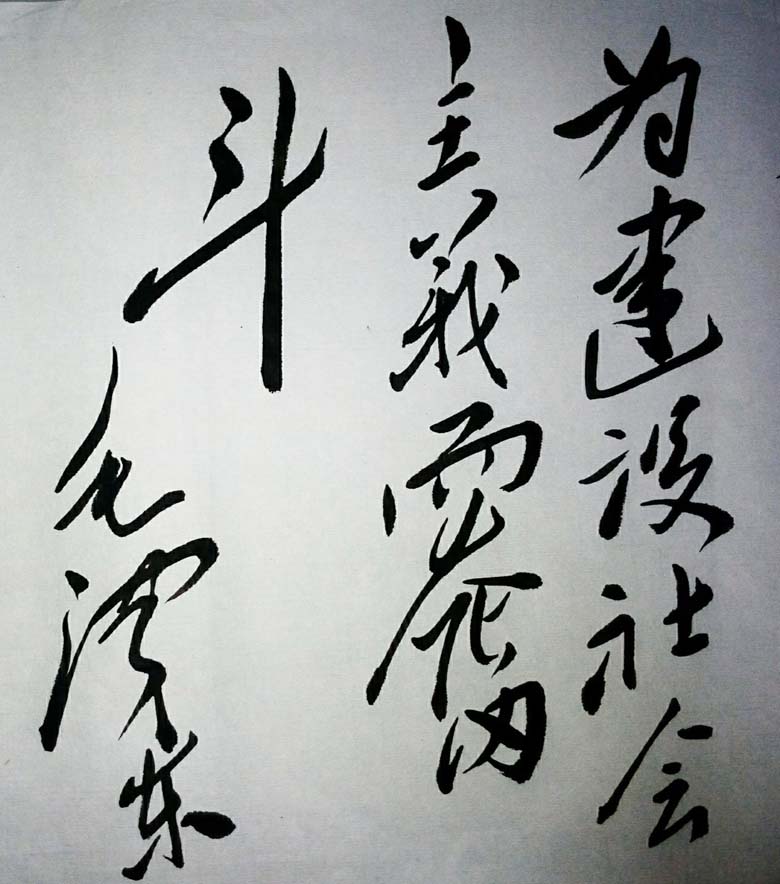 为建设社会
主義而奮
斗
毛澤东